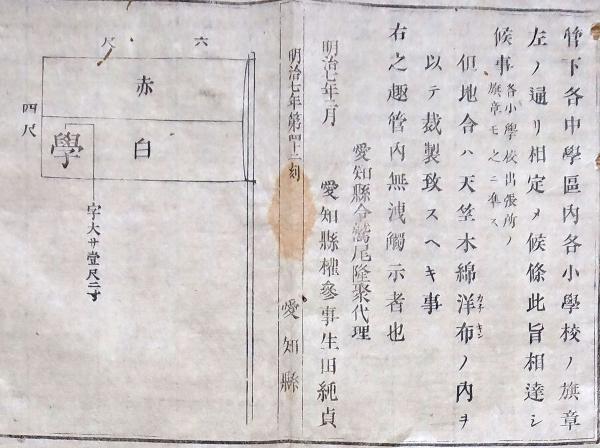 管下各中學區内各小學校ノ旗章
左ノ通リ相定メ候條此旨相達シ
候事
各小學校出張所ノ
旗章モ之ニ準ス
但地合ハ天竺木綿洋布ノ内ヲ
カナキン
以テ裁製致スヘキ事
右之趣管内無洩觸示者也
愛知縣令鷲尾隆聚代理
明治七年二月
愛知縣權參事生田純貞
明治七年第四十二刻
愛知縣
六尺
赤
白
四尺
學
字大サ壹尺二寸